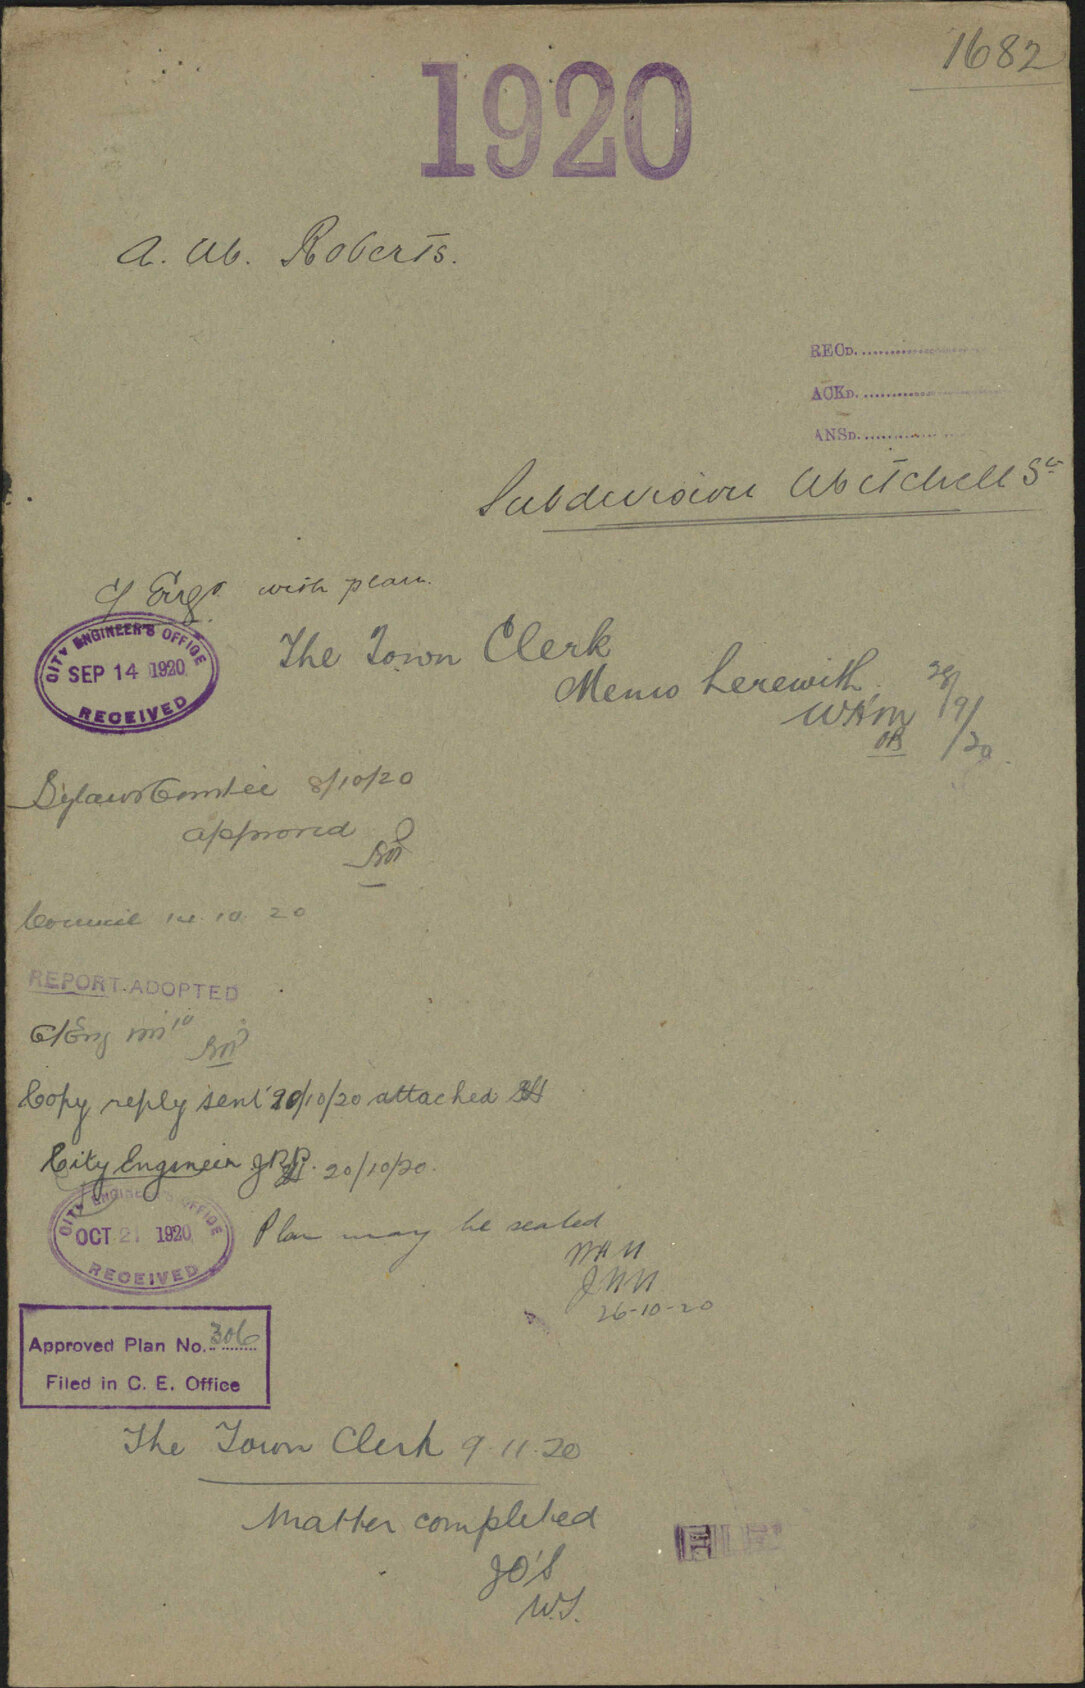 1682
1920
A. W. Roberts.
RECD.
ACKD.
ANSD.
Subdivision Mitchell St
C/ Engr with plan.
CITY ENGINEER'S OFFICE
SEP 14 1920
RECEIVED
The Town Clerk
Memo herewith
28/9/20
Bylaws Comtee 8/10/20
approved
Council 14.10.20
REPORT ADOPTED
C/Eng
Copy reply sent 20/10/20 attached
City Engineer 20/10/20.
CITY ENGINEER'S OFFICE
OCT 21 1920
RECEIVED
Plan may be sealed
26-10-20
Approved Plan No. 306
Filed in C. E. Office
The Town Clerk 9.11.20
Matter completed
JO'S
W.S.
FILE